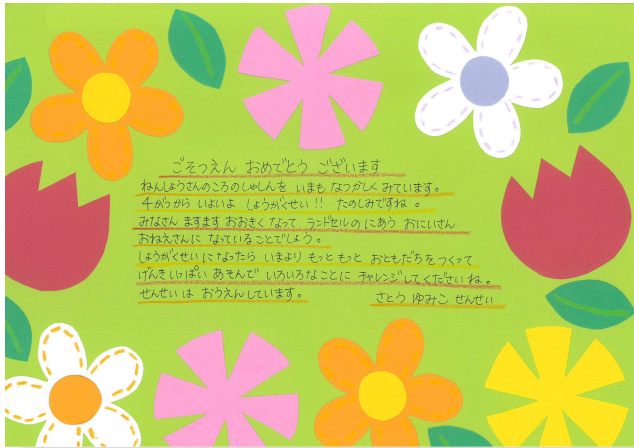 ごそつえん おめでとう ございます
ねんしょうさんのころのしゃしんを いまも なつかしく みています。
4がつから いよいよ しょうがくせい!! たのしみですね。
みなさん ますます おおきく なって ランドセルの にあう おにいさん
おねえさんに なっていることでしょう。
しょうがくせいに なったら いまより もっと もっと おともだちを つくって
げんき いっぱい あそんで いろいろな ことに チャレンジしてくださいね。
せんせいは おうえんしています。 さとう ゆみこ せんせい